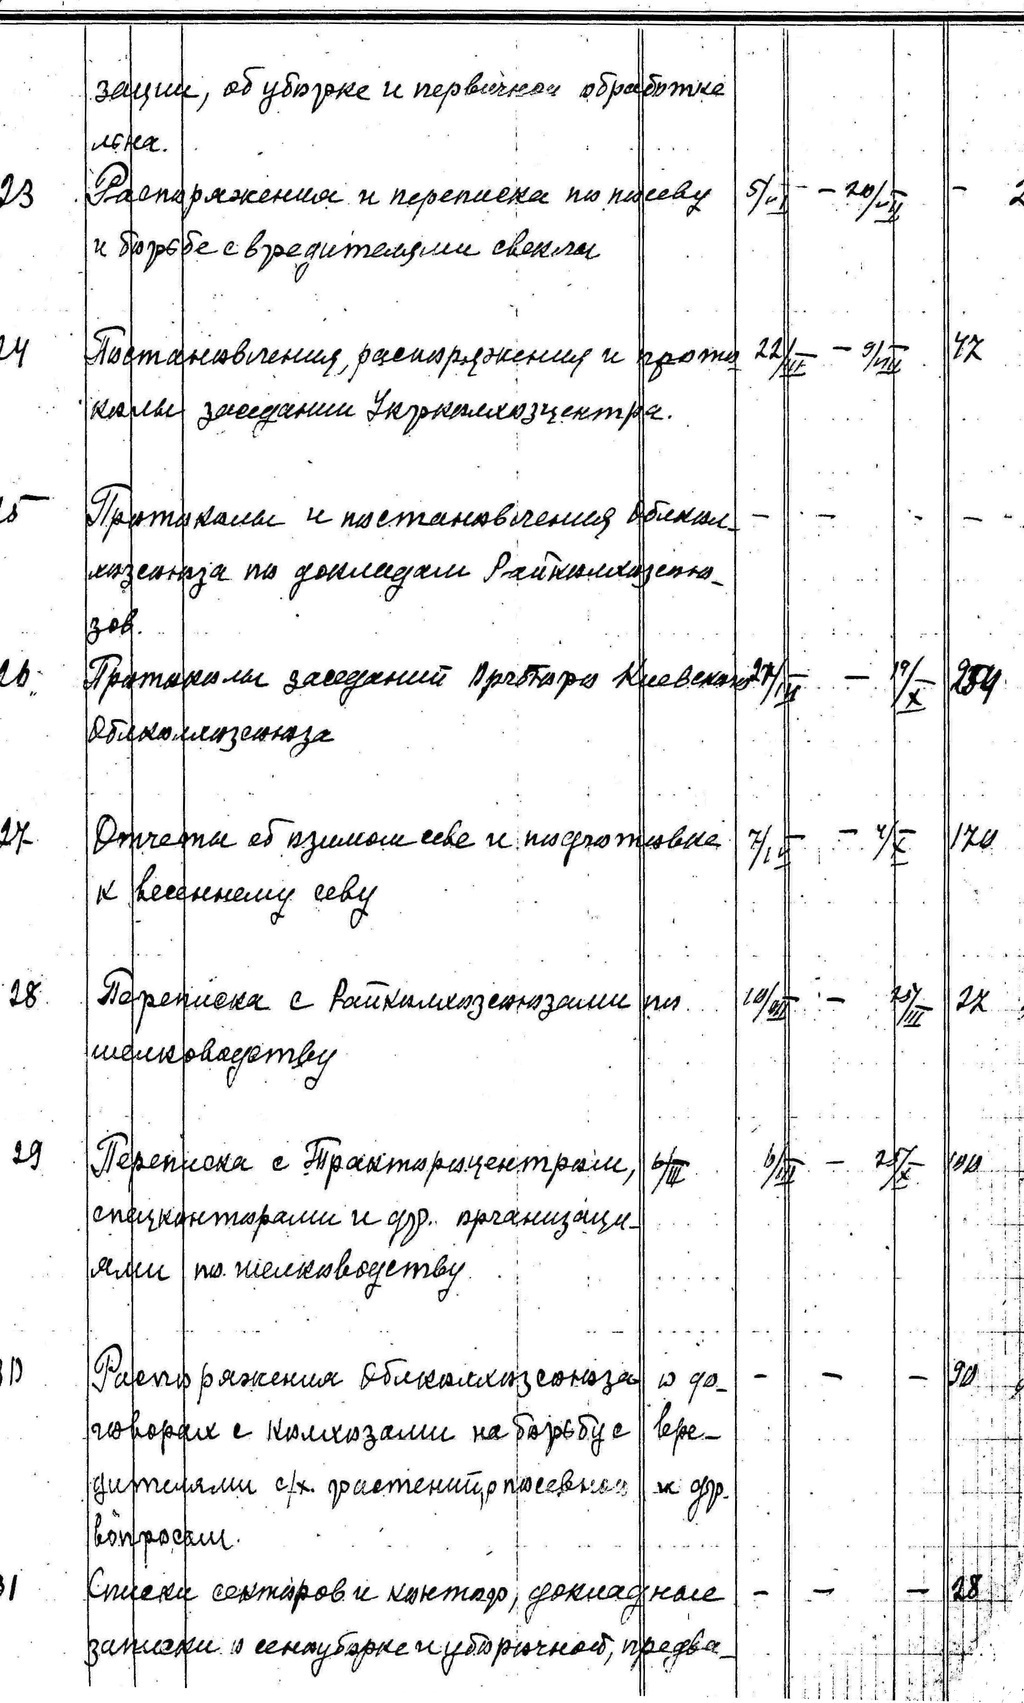 зации, об уборке и первичной обработке
льна.
23 Распоряжения и переписка по посеву 5/VI – 20/VII –
и борьбе с вредителями свеклы
24 Постановления, распоряжения и прото 22/VI – 9/VIII 47
колы заседании Укрколхозцентра.
25 Протоколы и постановления Облкол– – – –
хозсоюза по докладам Райколхозсою–
зов.
26. Протоколы заседаний Оргбюро Киевского – 19/X 254
Облколхозсоюза
27 Отчеты об озимом севе и подготовке – 4/X 170
к весеннему севу
28 Переписка с Райколхозсоюзами по – 27
шелководству
29 Переписка с Трактороцентром, 6/III 6/III – 25/X 100
спецконторами и др. организаци–
ями по шелководству
30 Распоряжения Облколхозсоюза о до– – – – 90
говорах с колхозами на борьбу с вре–
дителями с/х. растений, посевной и др.
вопросам.
31 Списки секторов и контор, докладные – – – 28
записки о сеноуборке и уборочной, предва–